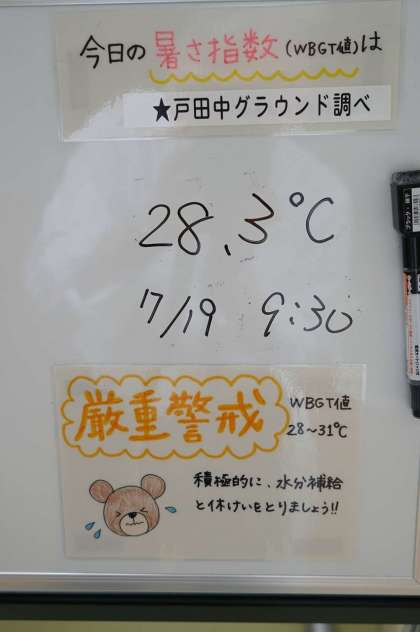 今日の暑さ指数(WBGT値)は
★戸田中グラウンド調べ
28.3°C
7/19 9:30
厳重警戒
WBGT値
28~31℃
積極的に、水分補給
と休けいをとりましょう!!